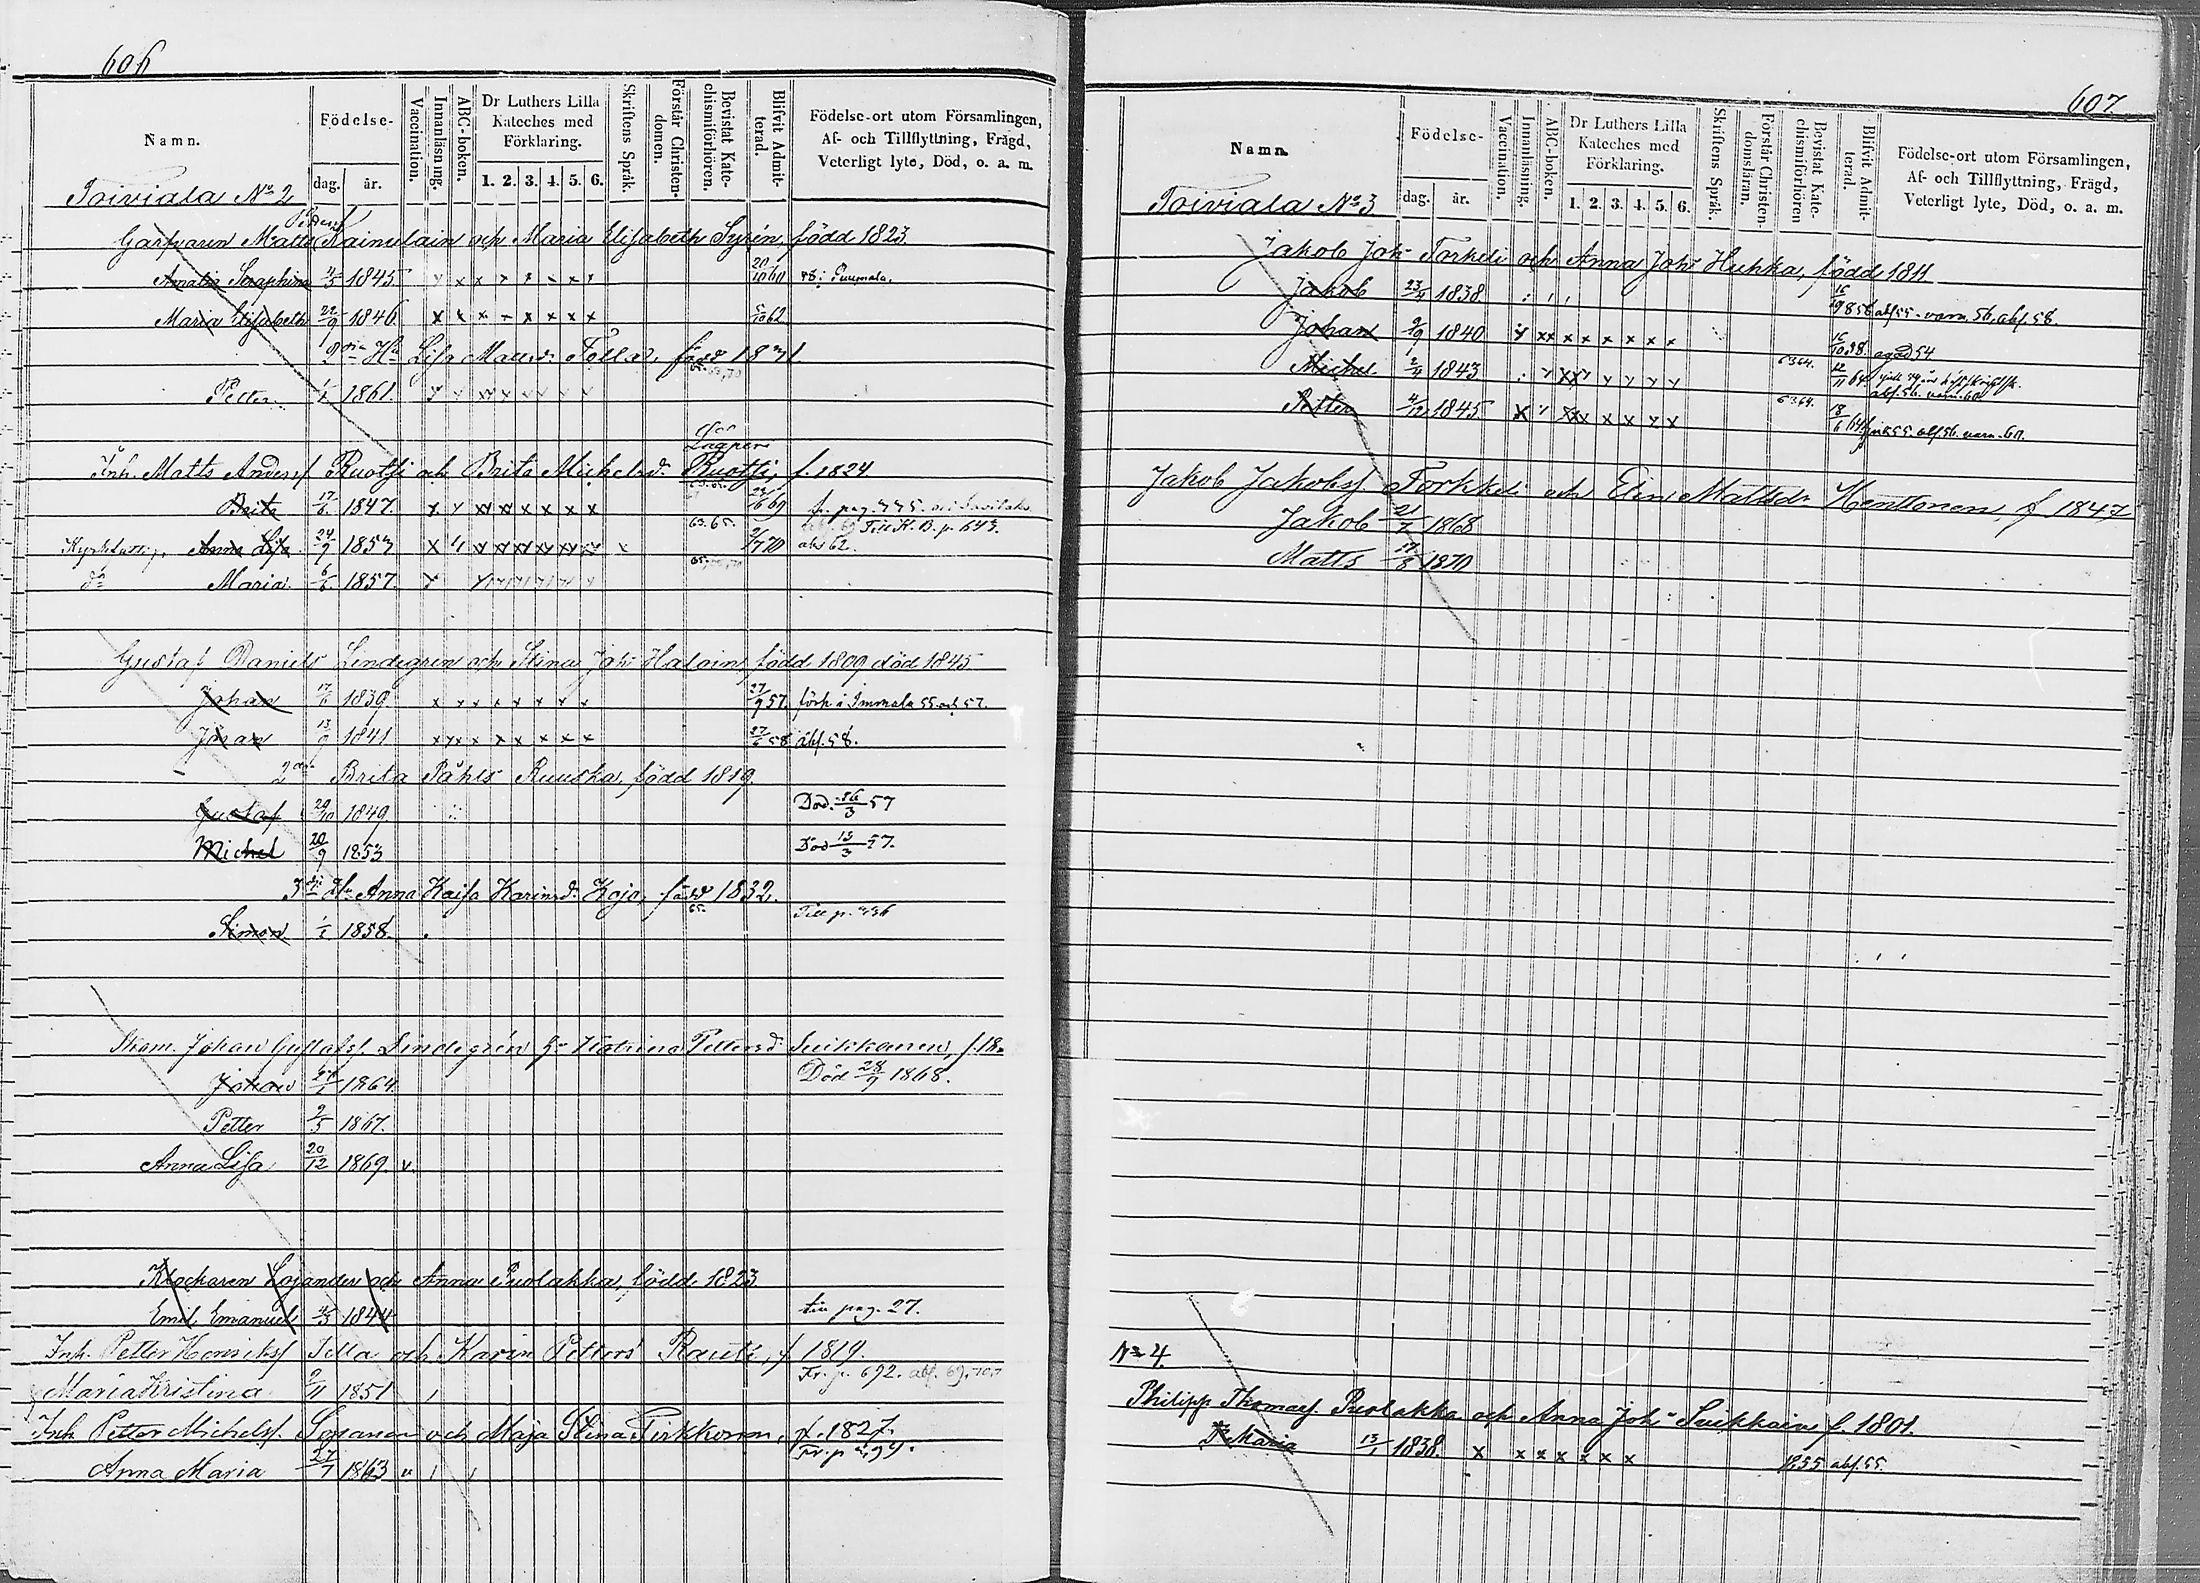 606
Namn.
Födelse-
dag. år.
Vaccination.
Innanläsning.
ABC-boken.
Dr Luthers Lilla Kateches med Förklaring.
1. 2. 3. 4. 5. 6.
Skriftens Språk.
Förstår Christen-domen.
Bevistat Kate-chismiförhören.
Blifvit Admit-terad.
Födelse-ort utom Församlingen, Af- och Tillflyttning, Frägd, Veterligt lyte, Död, o. a. m.
Toiviala No 2
Matts Kainulain och Maria Elisabeth Syrén, född 1823
Amalia Seraphina 4/5 1845 20/10 60
Maria Elisabeth 22/9 1846 5/10 62
2dra Hu Lisa Mattsd. född 1831
Petter 1/1 1861
Inh. Matts Anderss Ruotsi och Brita Michelsd. Ruotsi, f. 1824
Brita 17/6 1847 69
Kyrklatt; Anna Lisa 24/9 1853 63.65. 70 Till K. B. p. 643.
do Maria 6/6 1857
Gustaf Daniels Lindegren och Stina Johs Halain, född 1809 död 1845
Johan 17/6 1839 27/9 57. förh i Immala 55 och 57.
Göran 13/9 1841 27/6 58 abs. 58.
2dra Brita Påhls Ruuska, född 1819
Gustaf 29/10 1849 Död 16/3 57
Michel 20/9 1853 Död 13/3 57.
3die Hu Anna Kaisa Karinsd. Kojo, född 1832.
Simon 1/1 1858. Till p.
Johan Gustafss. Lindegrén h. Katrina Pettersd. Suikkanen, f. 18
Johan 1864 Död 28/9 1868.
Petter 9/5 1867.
Anna Lisa 20/12 1869. v.
Klockaren Lojander och Anna Puolakka, född 1823
Emil Emanuel 4/3 1844 till pag. 27.
Inh. Petter Henrikss Tella och Karin Petters Rauti, f 1819.
Maria Kristina 9/11 1851 Fr. p. 692.
Inh. Petter Michelss. Soranen och Maja Stina Tirkkonen, f. 1827.
Anna Maria 27/7 1863
607
Namn.
Födelse-
dag. år.
Vaccination.
Innanläsning.
ABC-boken.
Dr Luthers Lilla Kateches med Förklaring.
1. 2. 3. 4. 5. 6.
Skriftens Språk.
Förstår Christen-domsläran.
Bevistat Kate-chismiförhören
Blifvit Admit-terad.
Födelse-ort utom Församlingen, Af- och Tillflyttning, Frägd, Veterligt lyte, Död, o. a. m.
Toiviala No 3
Jakob Johs Torkkeli och Anna Johs Huhka, född 1811
Jakob 23/4 1838 abs 55 - varn. 56. abs. 58.
Johan 9/9 1840 16/10 38. agad 54
Michel 2/4 1843 6364. 12/11 64. abs. 56. varn. 60
Petter 4/12 1845 6364. 18/6 64 abs 56. varn. 60.
Jakob Jakobss. Torkkeli och Elin Mattsdr Henttonen, f 1847
Jakob 21/7 1868
Matts 17/8 1870
No 4.
Philipp Thomass. Puolakka och Anna Johs Suikkain, f. 1801.
Dr Maria 13/1 1838. 1855 abs. 55.